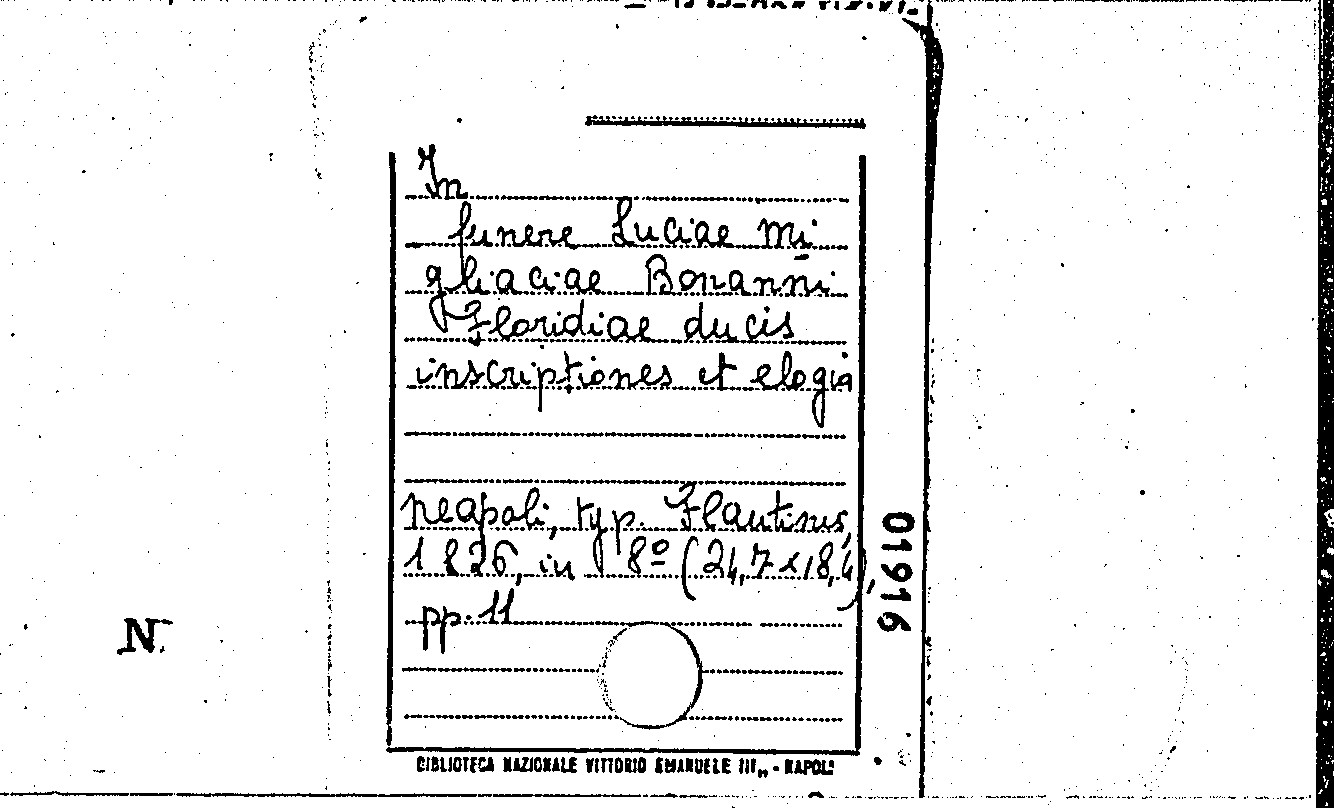 In
funere Luciae Mi
gliaciae Bonanni
Floridiae ducis
inscriptiones et elogia
Neapoli, typ. Flautinis,
1826, in 8º (24,7 x 18,4),
pp. 11
01916
N.
BIBLIOTECA NAZIONALE VITTORIO EMANUELE III,, - NAPOLI